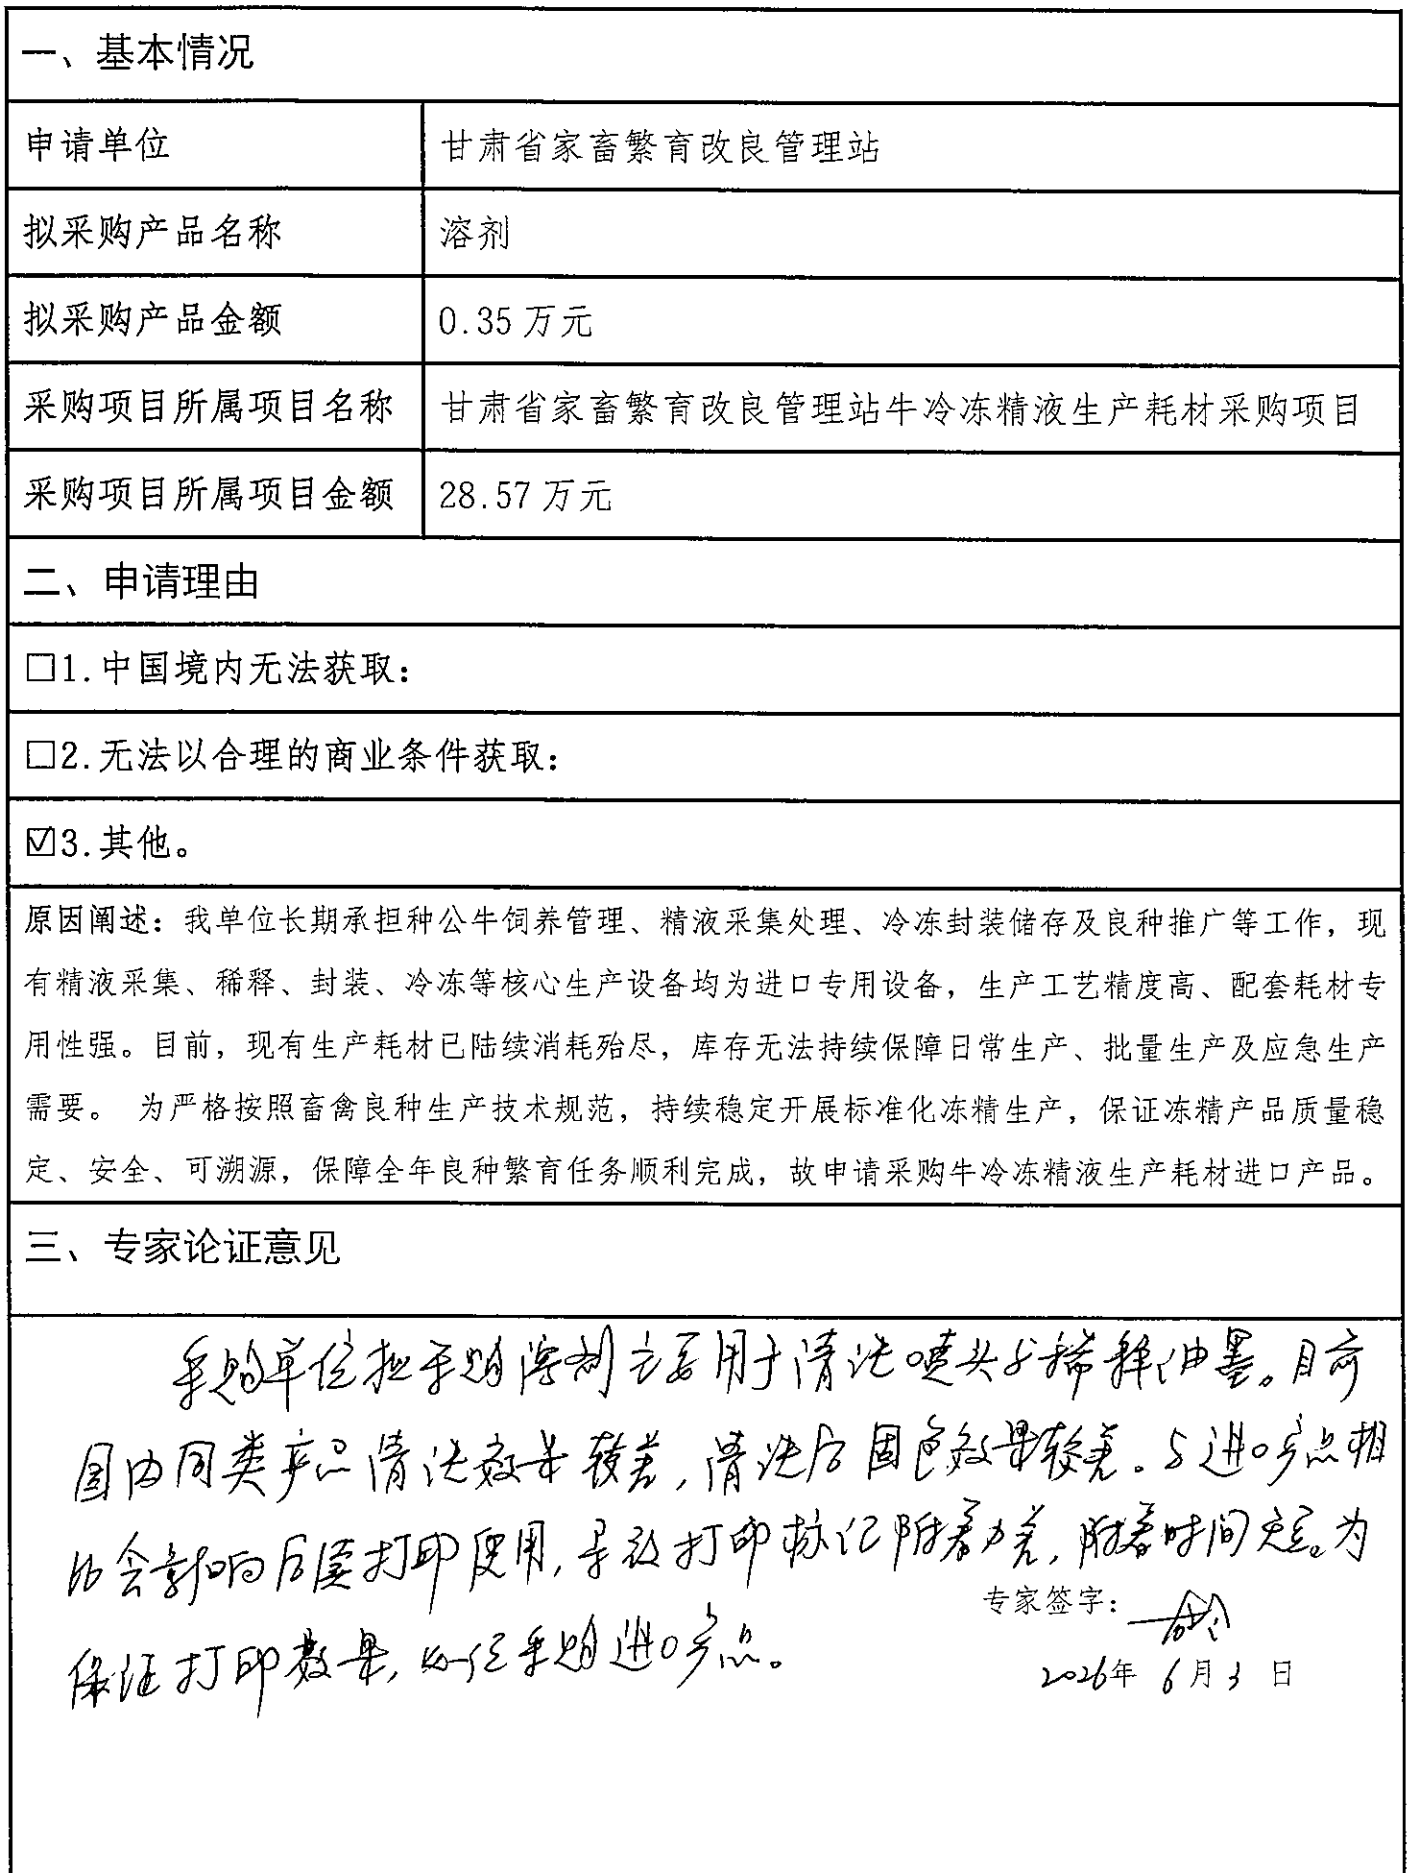 一、基本情况
申请单位 甘肃省家畜繁育改良管理站
拟采购产品名称 溶剂
拟采购产品金额 0.35万元
采购项目所属项目名称 甘肃省家畜繁育改良管理站牛冷冻精液生产耗材采购项目
采购项目所属项目金额 28.57万元
二、申请理由
□1.中国境内无法获取：
□2.无法以合理的商业条件获取：
☑3.其他。
原因阐述：我单位长期承担种公牛饲养管理、精液采集处理、冷冻封装储存及良种推广等工作，现
有精液采集、稀释、封装、冷冻等核心生产设备均为进口专用设备，生产工艺精度高、配套耗材专
用性强。目前，现有生产耗材已陆续消耗殆尽，库存无法持续保障日常生产、批量生产及应急生产
需要。 为严格按照畜禽良种生产技术规范，持续稳定开展标准化冻精生产，保证冻精产品质量稳
定、安全、可溯源，保障全年良种繁育任务顺利完成，故申请采购牛冷冻精液生产耗材进口产品。
三、专家论证意见
采购单位拟采购溶剂主要用于清洗喷头与稀释油墨。目前
国内同类产品清洗效果较差，清洗后固色效果较差。与进口产品相
比会影响后续打印使用，导致打印标记附着力差，附着时间短。为
保证打印效果，建议采购进口产品。
专家签字：
2026年 6月3日